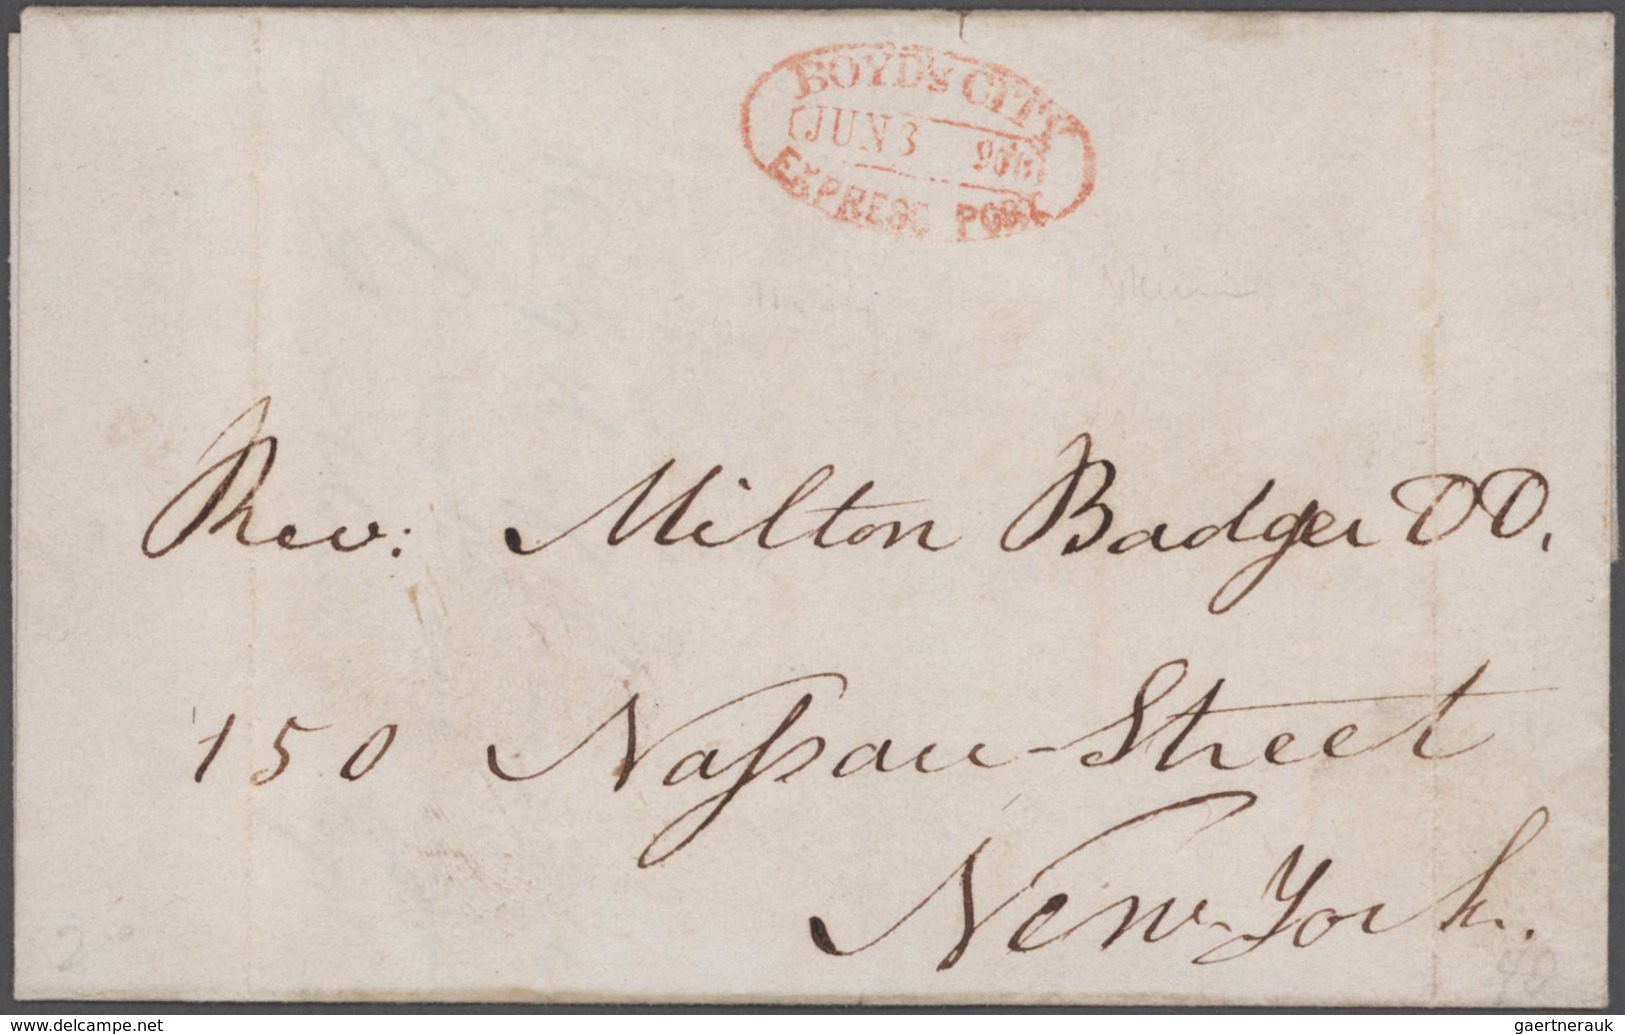 BOYD'S CITY
JUN 3
EXPRESS POST
Rev: Milton Badger DD.
150 Nassau-Street
New-York.
2
40
www.delcampe.net
gaertnerauk